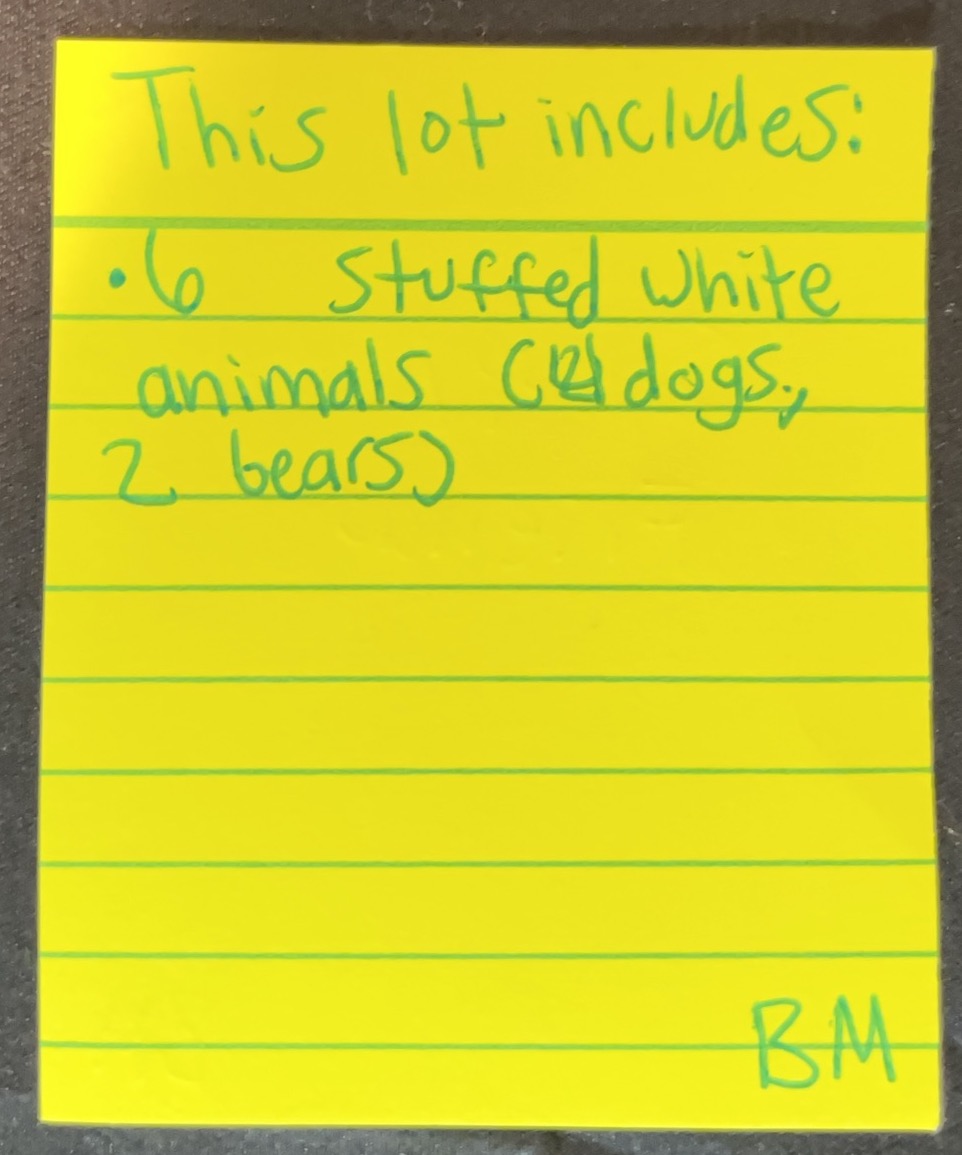 This lot includes:
• 6 stuffed white
animals (4 dogs,
2 bears)
BM